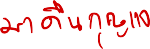 มาคืนกุญแจ